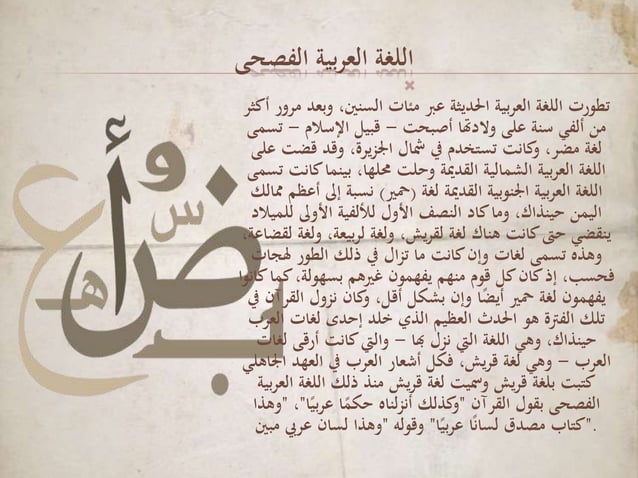 اللغة العربية الفصحى
تطورت اللغة العربية الحديثة عبر مئات السنين، وبعد مرور أكثر
من ألفي سنة على ولادتها أصبحت – قبيل الإسلام – تسمى
لغة مضر، وكانت تستخدم في شمال الجزيرة، وقد قضت على
اللغة العربية الشمالية القديمة وحلت محلها، بينما كانت تسمى
اللغة العربية الجنوبية القديمة لغة (حمير) نسبة إلى أعظم ممالك
اليمن حينذاك، وما كاد النصف الأول للألفية الأولى للميلاد
ينقضي حتى كانت هناك لغة لقريش، ولغة لربيعة، ولغة لقضاعة،
وهذه تسمى لغات وإن كانت ما تزال في ذلك الطور لهجات
فحسب، إذ كان كل قوم منهم يفهمون غيرهم بسهولة، كما كانوا
يفهمون لغة حمير أيضًا وإن بشكل أقل، وكان نزول القرآن في
تلك الفترة هو الحدث العظيم الذي خلد إحدى لغات العرب
حينذاك، وهي اللغة التي نزل بها – والتي كانت أرقى لغات
العرب – وهي لغة قريش، فكل أشعار العرب في العهد الجاهلي
كتبت بلغة قريش وسميت لغة قريش منذ ذلك اللغة العربية
الفصحى بقول القرآن "وكذلك أنزلناه حكمًا عربيًا"، "وهذا
كتاب مصدق لسانًا عربيًا" وقوله "وهذا لسان عربي مبين".